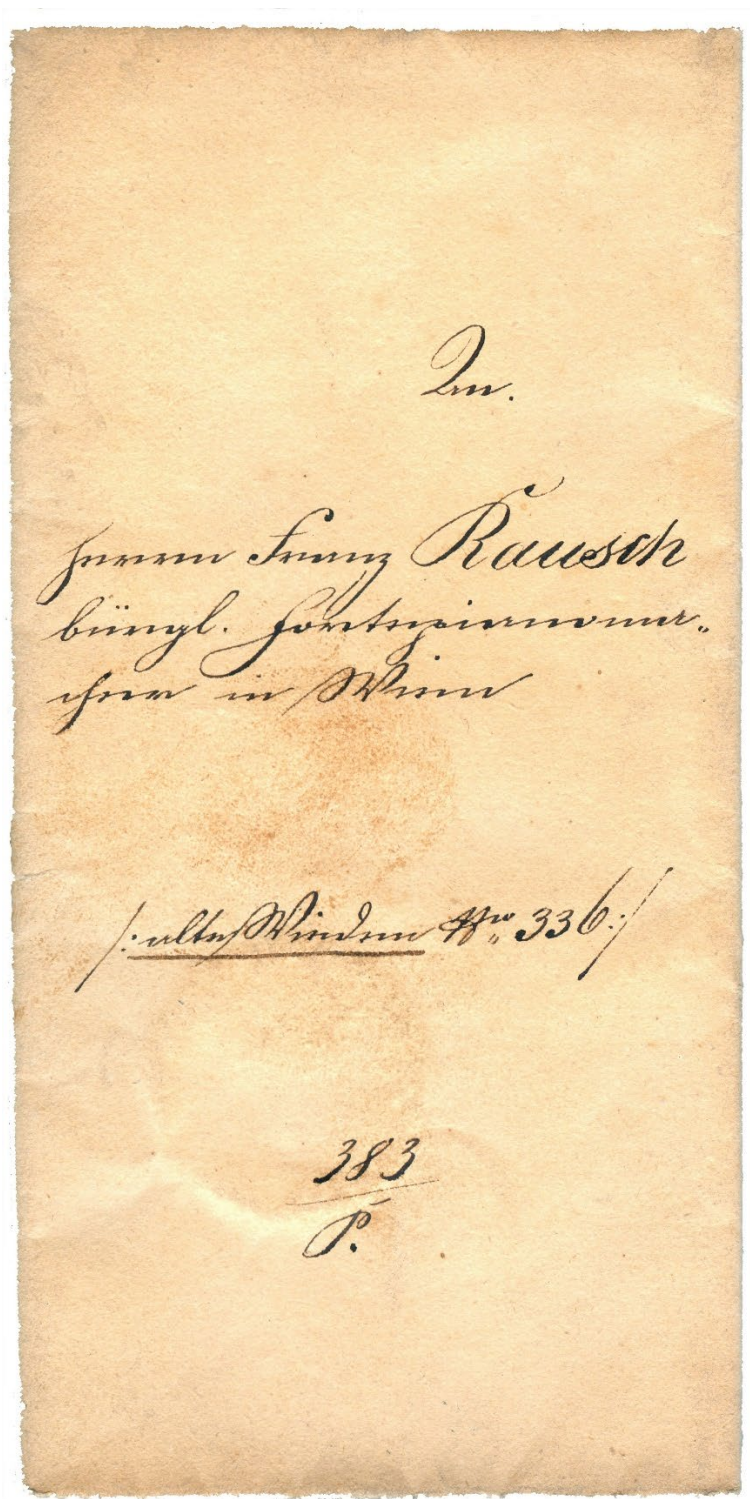 An.
Herrn Franz Rausch
bürgl. Fortepianoma„
cher in Wien
/: alte Wieden Nro 336 :/
383
P.